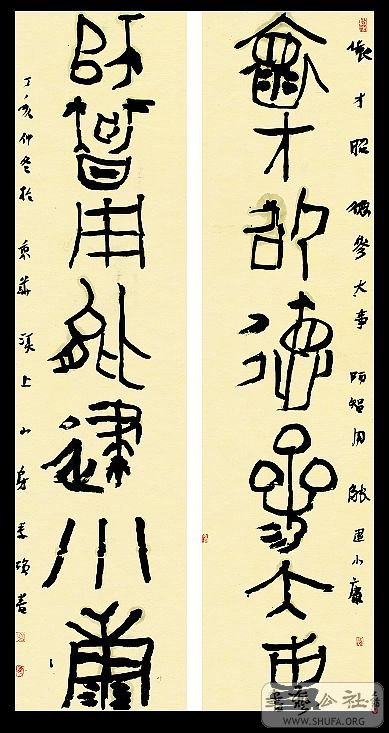 懷才昭德參大事 師智用能建小康
懷才昭德參大事
師智用能建小康
丁亥仲冬於京華溪上山房
公社
WWW.SHUFA.ORG